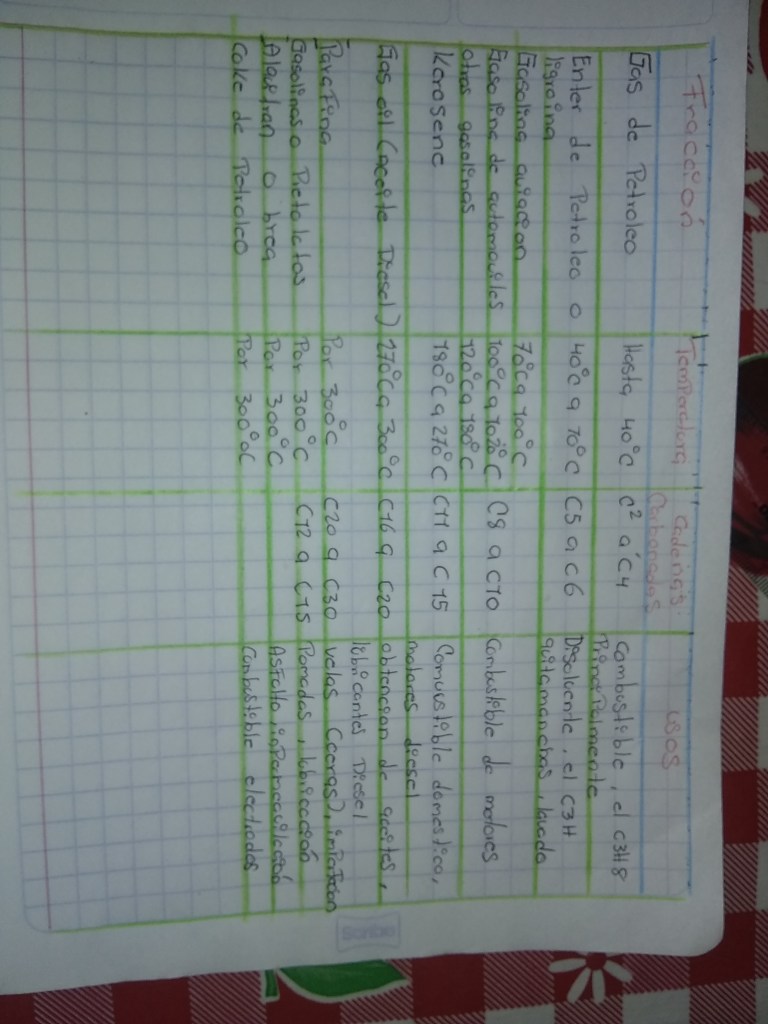 Fracción Temperatura Cadenas Carbonadas usos
Gas de Petroleo Hasta 40°C C² a C4 Combustible, el C3H8 Principalmente
Enter de Petroleo o ligroina 40°C a 70°C C5 a C6 Disolvente, el C3H quitamanchas, lavado
Gasolina aviacion 70°C a 100°C
Gasolina de automoviles 100°C a 1020°C C8 a C10 Combustible de motores
otras gasolinas 120°C a 180°C
Kerosene 180°C a 270°C C11 a C15 Comustible domestico, motores diesel
Gas oil (aceite Diesel) 270°C a 300°C C16 a C20 obtencion de aceites, lubricantes Diesel
Parafina Por 300°C C20 a C30 velas (ceras),
Gasolinas o Pretolatos Por 300°C C12 a C15 Pomadas, lubricación
Alquitran o brea Por 300°C Asfalto,
Coke de Petroleo Por 300°C Combustible electrodos